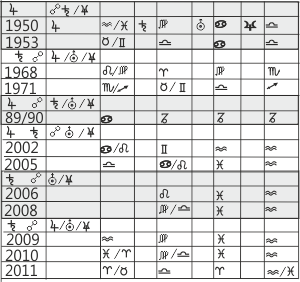 ♃ ☍♄ / ⛢ / ♆
1950 ♃ ♒/♓ ♄ ♍ ⛢ ♋ ♆ ♎
1953 ♉/♊ ♎ ♋ ♎
♄ ☍ ♃ / ⛢ / ♆
1968 ♌/♍ ♈ ♍ ♏
1971 ♏/♐ ♉/♊ ♎ ♐
♃ ☍ ♄ / ⛢ / ♆
89/90 ♋ ♑ ♑ ♑
♃ ♄ ☍ ⛢ / ♆
2002 ♋/♌ ♊ ♒ ♒
2005 ♎ ♋/♌ ♓ ♒
♄ ☍ ⛢ / ♆
2006 ♌ ♓ ♒
2008 ♍/♎ ♓ ♒
♄ ☍ ♃ / ⛢ / ♆
2009 ♒ ♍ ♓ ♒
2010 ♓/♈ ♍/♎ ♓ ♒
2011 ♈/♉ ♎ ♈ ♒/♓